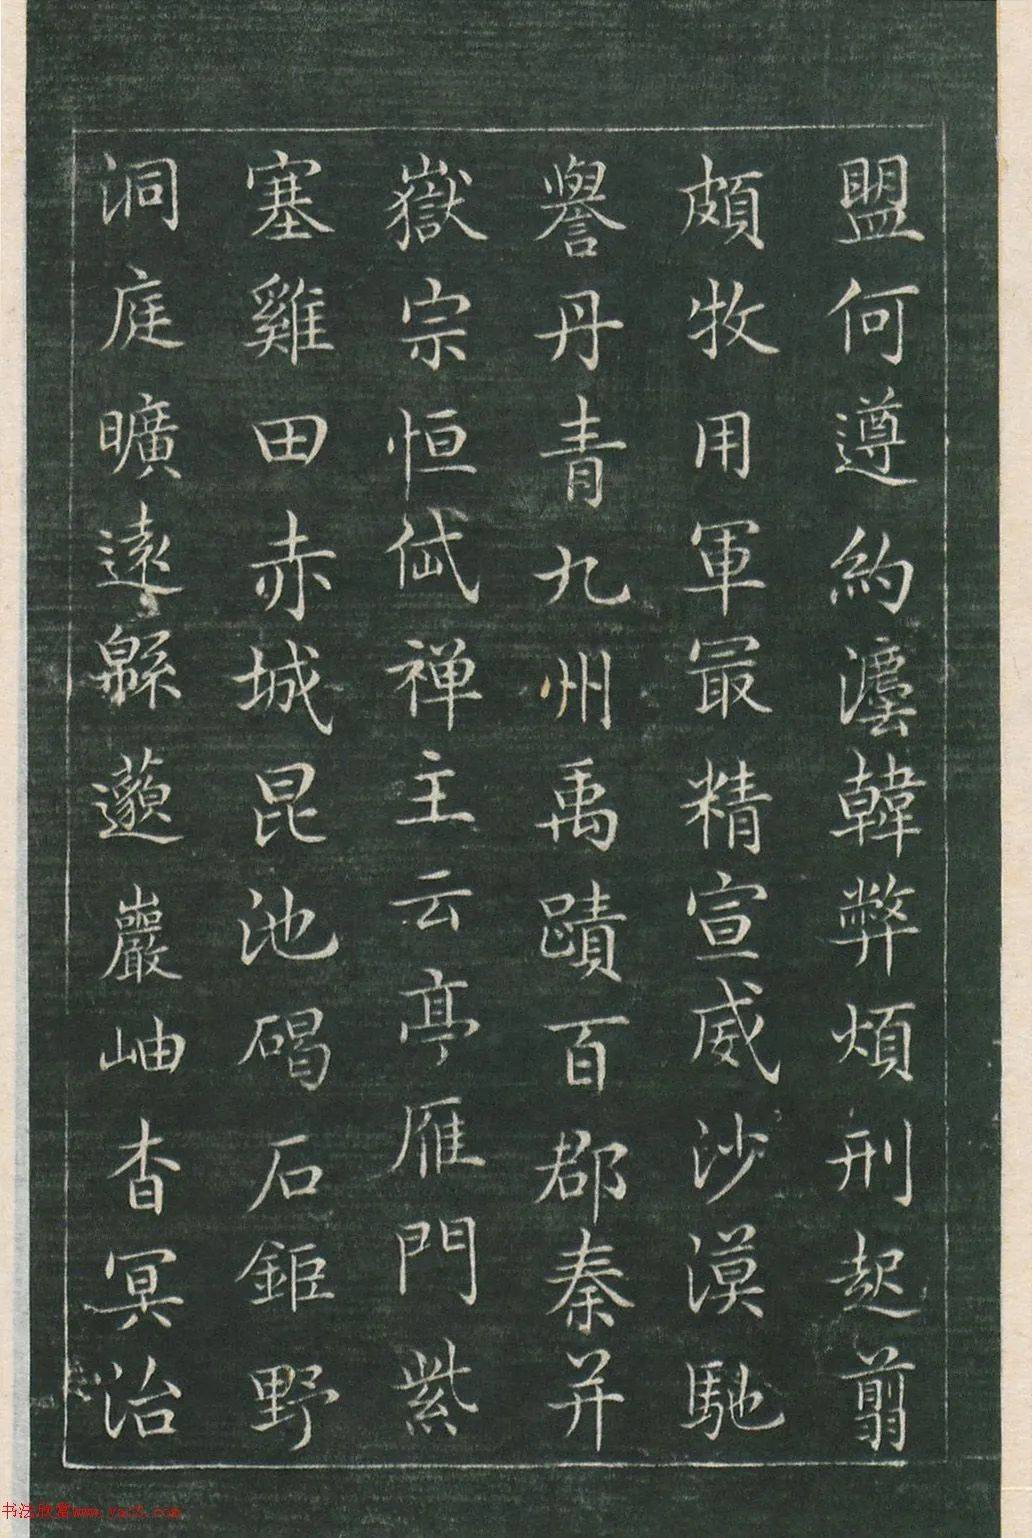 盟何遵約灋韓弊煩刑起翦
頗牧用軍最精宣威沙漠馳
譽丹青九州禹蹟百郡秦并
嶽宗恒岱禅主云亭雁門紫
塞雞田赤城昆池碣石鉅野
洞庭曠遠緜邈巖岫杳冥治
书法欣赏www.yac8.com